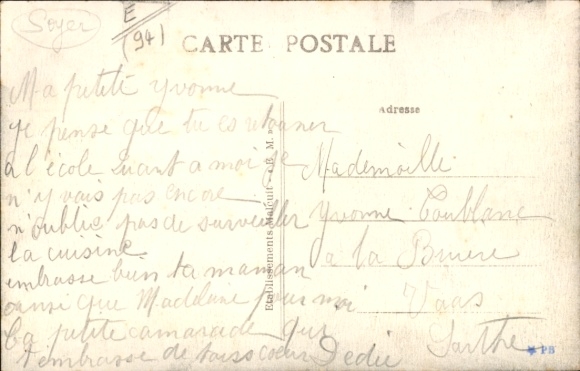 Soyer
E
(94)
CARTE POSTALE
Ma petite Yvonne
Je pense que tu es retourner
a l'école quant a moi je
n'y vais pas encore
n'oublie pas de surveiller
la cuisine.
embrasse bien ta maman
ainsi que Madeleine pour moi
Ta petite camarade qui
t'embrasse de tous coeur Dedie
Adresse
Mademoiselle
Yvonne
a la Bruere
Vaas
Sarthe
Etablissements Malcuit
PB